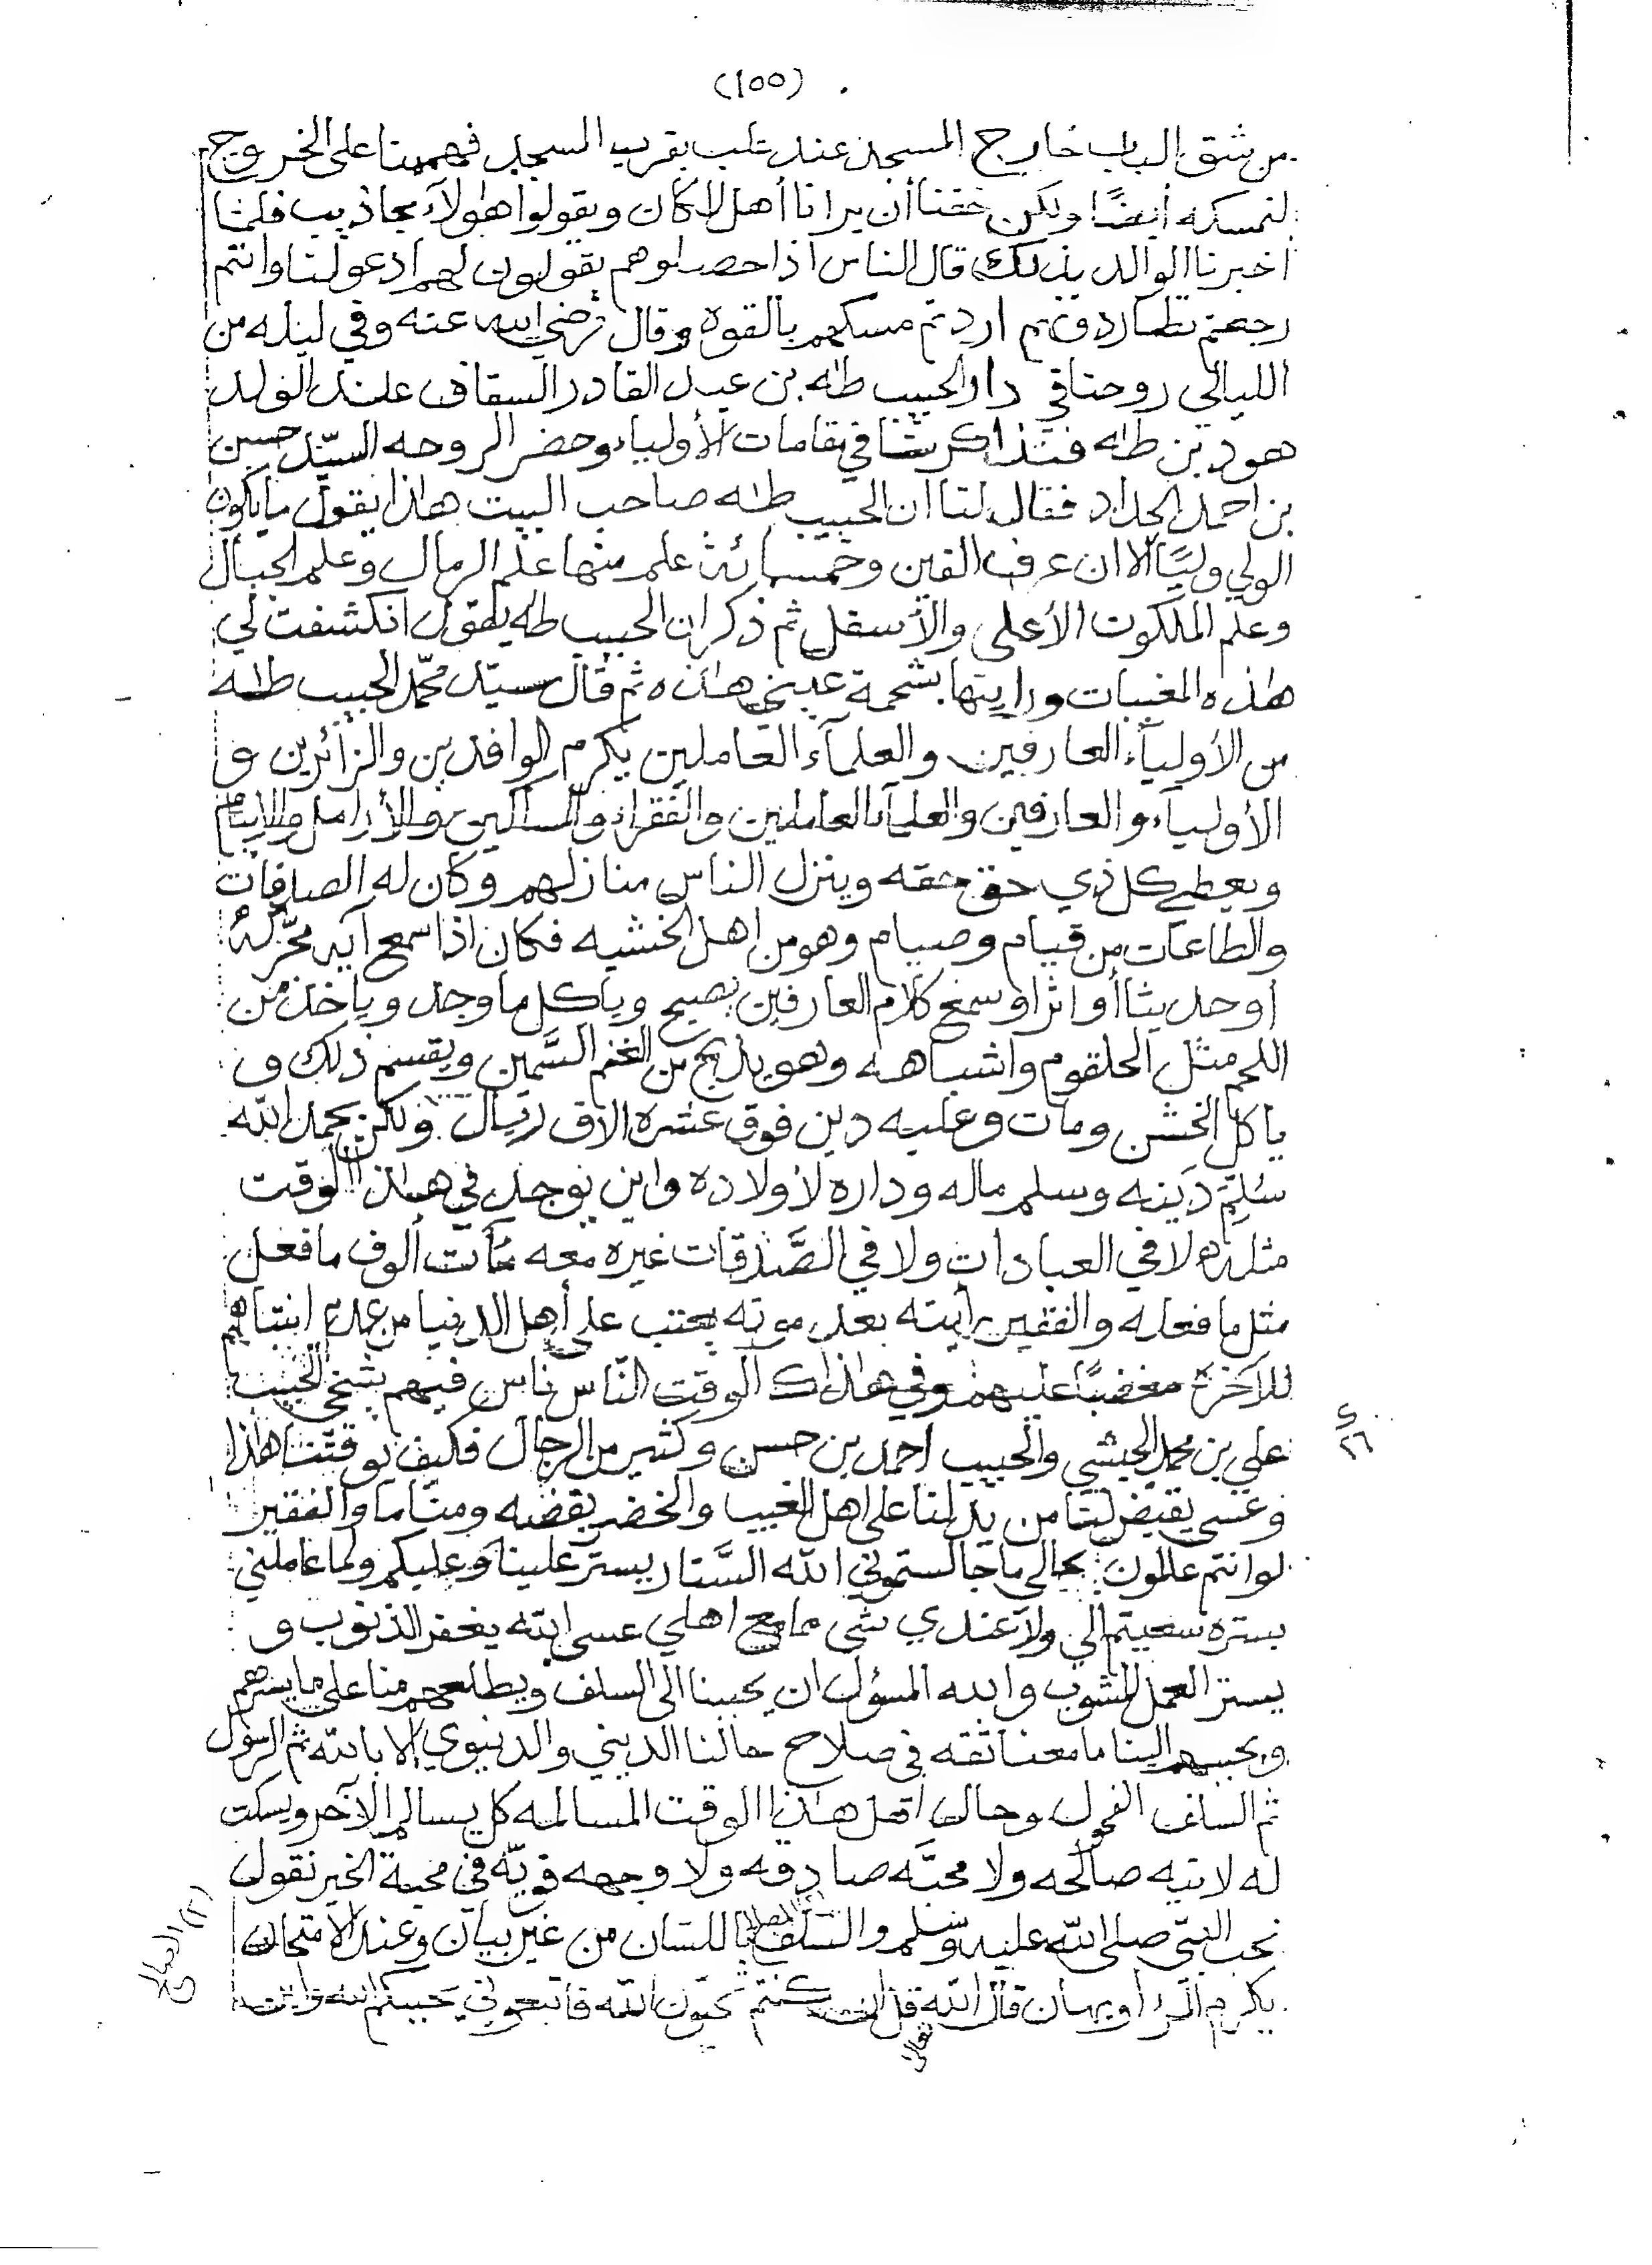 (١٥٥)
من شق الباب خارج المسجد عند علب بقرب المسجد فهممنا على الخروج
لنمسكه أيضًا ولكن خفنا أن يرانا أهل المكان ويقولوا هؤلآء مجاذيب فلما
اخبرنا الوالد بذلك قال الناس اذا حصلوهم يقولون لهم ادعو لنا وانتم
رجعتم تطاردونهم اردتم مسكهم بالقوة وقال رضي الله عنه وفي ليله من
الليالي روحنا في دار الحبيب طله بن عبد القادر السقاف عند الولد
هود بن طله فتذاكرنا في مقامات الأولياء وحضر الروحه السيّد حسين
بن احمد الحداد فقال لنا ان الحبيب طله صاحب البيت هاذا يقول ما يكون
الولي وليًّا الا ان عرف الفين وخمسمائة علم منها علم الرمال وعلم الجبال
وعلم الملكوت الأعلى والأسفل ثم ذكر ان الحبيب طله يقول انكشفت لي
هذه المغيبات ورايتها بشحمة عيني هاذه ثم قال سيّد محمّد الحبيب طله
من الأوليآء العارفين والعلمآء العاملين يكرم الوافدين والزائرين و
الأوليآء والعارفين والعلمآء العاملين والفقراء والمساكين والأرامل والايتام
ويعطي كل ذي حق حقه وينزل الناس منازلهم وكان له الصدقات
والطاعات من قيام وصيام وهو من اهل الخشيه فكان اذا سمع آيه محزنة
أو حديثا أو اثرا وسمع كلام العارفين يصيح وياكل ما وجد وياخذ من
اللحم مثل الحلقوم واشباهه وهو يذبح من الغنم السَّمين ويقسم ذلك و
ياكل الخشن ومات وعليه دين فوق عشره الاف ريال ولكن بحمد الله
سُلِّمَ دَينه وسلم ماله وداره لأولاده واين يوجد في هاذا الوقت
مثله لا في العبادات ولا في الصَّدقات غيره معه مآت ألوف ما فعل
مثل ما فعله والفقير رأيته بعد موته يعتب على أهل الدنيا من عدم انتباههم
للآخرة مغضبًا عليهم وفي هاذاك الوقت النّاس ناس فيهم شيخي الحبيب
علي بن محمد الحبشي والحبيب احمد بن حسن وكثير من الرجال فكيف بوقتنا هاذا
وعسى يقيّض لنا من يدلنا على اهل الغيب والخضر يقضه ومناما والفقير
لو انتم عالمون بحالي ما جالستموني الله السَّتار يستر علينا وعليكم ولما عاملني
بستره سعيتم الي ولا عندي شى مامع اهلي عسى الله يغفر الذنوب و
يستر العمل المشوب والله المسؤل ان يحببنا الى السلف ويطلعهم منا على ما يسرهم
ويحببهم الينا ما معنا ثقه في صلاح حالنا الديني والدنيوي الا بالله ثم الرسول
ثم السلف الفحول وحال اهل هاذا الوقت المسالمه كل يسالم الآخر ويسكت
له لا نيه صالحه ولا محبّه صادقه ولا وجهه قويّه في محبة الخير نقول
نحب النبي صلى الله عليه وسلم والسّلف باللسان من غير بيان وعند الأمتحان
يكرم المرء او يهان قال الله تعالى قل ان كنتم تحبون الله فاتبعوني يحببكم الله
٢٦
(٢) الصالح